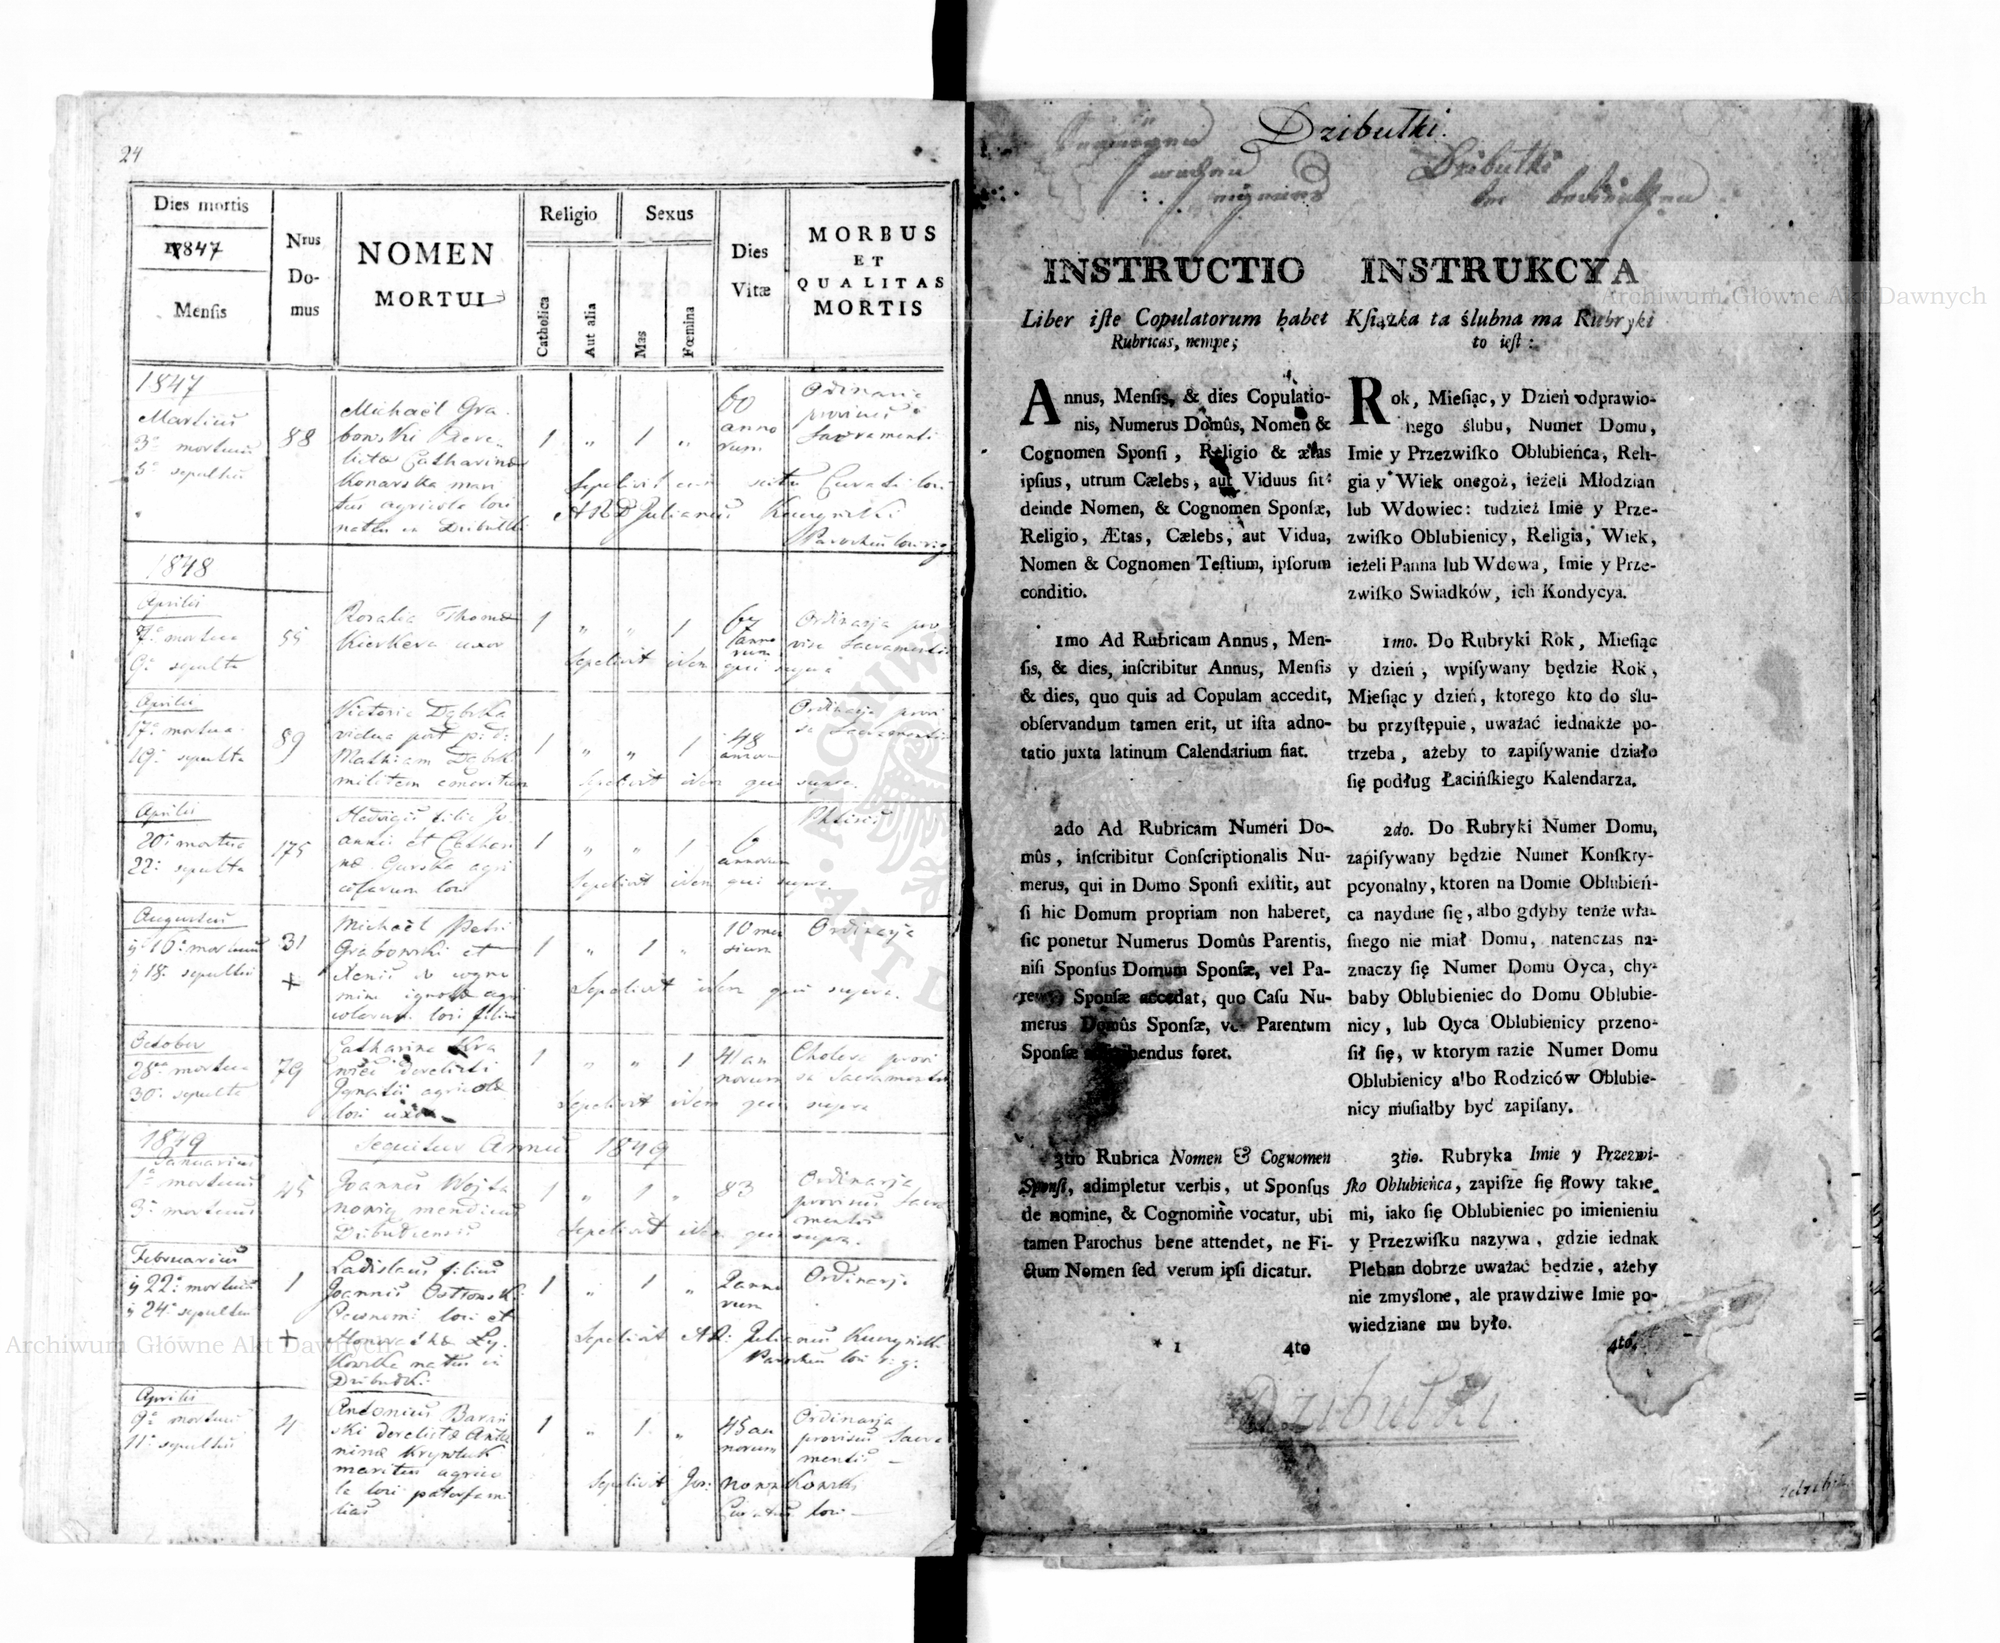 24
Dies mortis
1847
Mensis
Nrus
Do-
mus
NOMEN
MORTUI
Religio
Catholica
Aut alia
Sexus
Mas
Fœmina
Dies
Vitæ
MORBUS
ET
QUALITAS
MORTIS
1847
Martius
3a mortuus
5a sepultus
88
Michaël Gra-
bowski
Catharinæ
Konarska mari
tus agricola loci
natus in Dzibulki
1 " 1 "
60
anno
rum
Ordinaria
provisus
Sacramentis
Sepelivit cum scitu Curati loci
A R D Julianus
Parochus
1848
Aprilis
7a mortua
9a sepulta
55
Rosalia Thomæ
uxor
1 " " 1
anno
rum
Ordinarja pro
visa Sacramentis
Sepelivit idem qui supra
Aprilis
17a mortua
19a sepulta
89
Victoria Dąbska
vidua post
Mathiam Dąbski
militem emeritum
1 " " 1
48
annorum
Ordinarja provi
sa Sacramentis
Sepelivit idem qui supra.
Aprilis
20a mortua
22a sepulta
175
Hedvigis filia Jo
annis et Cathari
næ Gurska agri
colarum loci
1 " " 1
6
annorum
Phtisis
Sepelivit idem qui supra.
Augustus
16a mortuus
18a sepultus
31
+
Michaël Petri
Grabowski et
Xenis de cogno
mine ignotæ agri
colarum loci filius
1 " 1 "
10 men
sium
Ordinarja
Sepelivit idem qui supra.
October
28va mortua
30a sepulta
79
Catharina
derelicti
Ignatii agricolæ
loci uxor
1 " " 1
41 an
norum
Cholera provi
sa Sacramentis
Sepelivit idem qui supra
1849
Sequitur Annus 1849
Januarius
1a mortuus
3a mortuus
45
Joannes Wojta
nowicz mendicus
1 " 1 "
83
Ordinarja
provisus Sacra
mentis
Sepelivit idem qui supra.
Februarius
22a mortuus
24a sepultus
1
+
Ladislaus filius
Joannis Ostrowski
loci et
Honoratæ
natus in
Dzibulki
1 " 1 "
2 anno
rum
Ordinarja
Sepelivit AR: Julianus
Parochus loci
Aprilis
9a mortuus
11a sepultus
4
Antonius Baran
ski derelictæ Anto
ninæ
maritus agrico
la loci paterfami
lias
1 " 1 "
45 an
norum
Ordinarja
provisus Sacra
mentis
Sepelivit
Curatus loci
Dzibułki.
Dzibułki
INSTRUCTIO
Liber iſte Copulatorum habet
Rubricas, nempe;
Annus, Menſis, & dies Copulatio-
nis, Numerus Domûs, Nomen &
Cognomen Sponſi, Religio & ætas
ipſius, utrum Cælebs, aut Viduus ſit:
deinde Nomen, & Cognomen Sponſæ,
Religio, Ætas, Cælebs, aut Vidua,
Nomen & Cognomen Teſtium, ipſorum
conditio.
1mo Ad Rubricam Annus, Men-
ſis, & dies, inſcribitur Annus, Menſis
& dies, quo quis ad Copulam accedit,
obſervandum tamen erit, ut iſta adno-
tatio juxta latinum Calendarium fiat.
2do Ad Rubricam Numeri Do-
mûs, inſcribitur Conſcriptionalis Nu-
merus, qui in Domo Sponſi exiſtit, aut
ſi hic Domum propriam non haberet,
ſic ponetur Numerus Domûs Parentis,
niſi Sponſus Domum Sponſæ, vel Pa-
Sponſæ accedat, quo Caſu Nu-
merus Domûs Sponſæ, vel Parentum
Sponſæ foret.
3tio Rubrica Nomen & Cognomen
Sponſi, adimpletur verbis, ut Sponſus
de nomine, & Cognomine vocatur, ubi
tamen Parochus bene attendet, ne Fi-
ctum Nomen ſed verum ipſi dicatur.
* 1
4to
INSTRUKCYA
Kſiążka ta ślubna ma Rubryki
to ieſt:
Rok, Mieſiąc, y Dzień odprawio-
nego ślubu, Numer Domu,
Imie y Przezwiſko Oblubieńca, Reli-
gia y Wiek onegoż, ieżeli Młodzian
lub Wdowiec: tudzież Imie y Prze-
zwiſko Oblubienicy, Religia, Wiek,
ieżeli Panna lub Wdowa, Imie y Prze-
zwiſko Swiadków, ich Kondycya.
1mo. Do Rubryki Rok, Mieſiąc
y dzień, wpiſywany będzie Rok,
Mieſiąc y dzień, ktorego kto do ślu-
bu przyſtępuie, uważać iednakże po-
trzeba, ażeby to zapiſywanie działo
ſię podług Łacińſkiego Kalendarza.
2do. Do Rubryki Numer Domu,
zapiſywany będzie Numer Konſkry-
pcyonalny, ktoren na Domie Oblubień-
ca nayduie ſię, albo gdyby tenże wła-
ſnego nie miał Domu, natenczas na-
znaczy ſię Numer Domu Oyca, chy-
baby Oblubieniec do Domu Oblubie-
nicy, lub Oyca Oblubienicy przeno-
ſił ſię, w ktorym razie Numer Domu
Oblubienicy albo Rodziców Oblubie-
nicy muſiałby być zapiſany.
3tio. Rubryka Imie y Przezwi-
ſko Oblubieńca, zapiſze ſię ſłowy takie-
mi, iako ſię Oblubieniec po imienieniu
y Przezwiſku nazywa, gdzie iednak
Pleban dobrze uważać będzie, ażeby
nie zmyślone, ale prawdziwe Imie po-
wiedziane mu było.
4to.
Dzibułki.
Archiwum Główne Akt Dawnych
Archiwum Główne Akt Dawnych